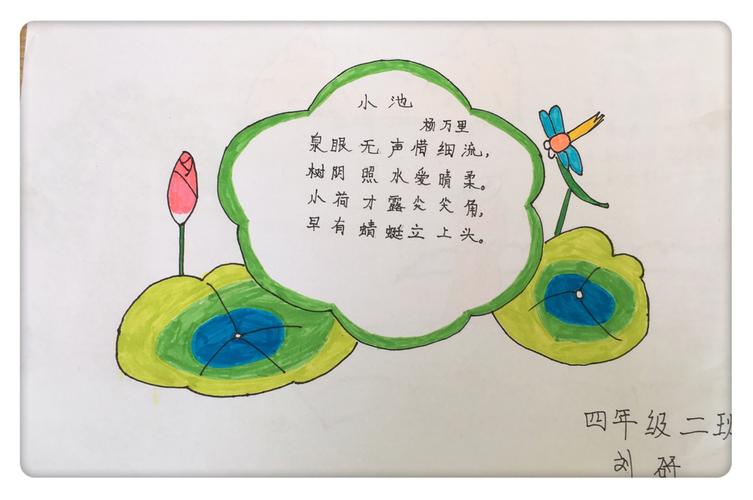 小池
杨万里
泉眼无声惜细流，
树阴照水爱晴柔。
小荷才露尖尖角，
早有蜻蜓立上头。
四年级二班
刘研